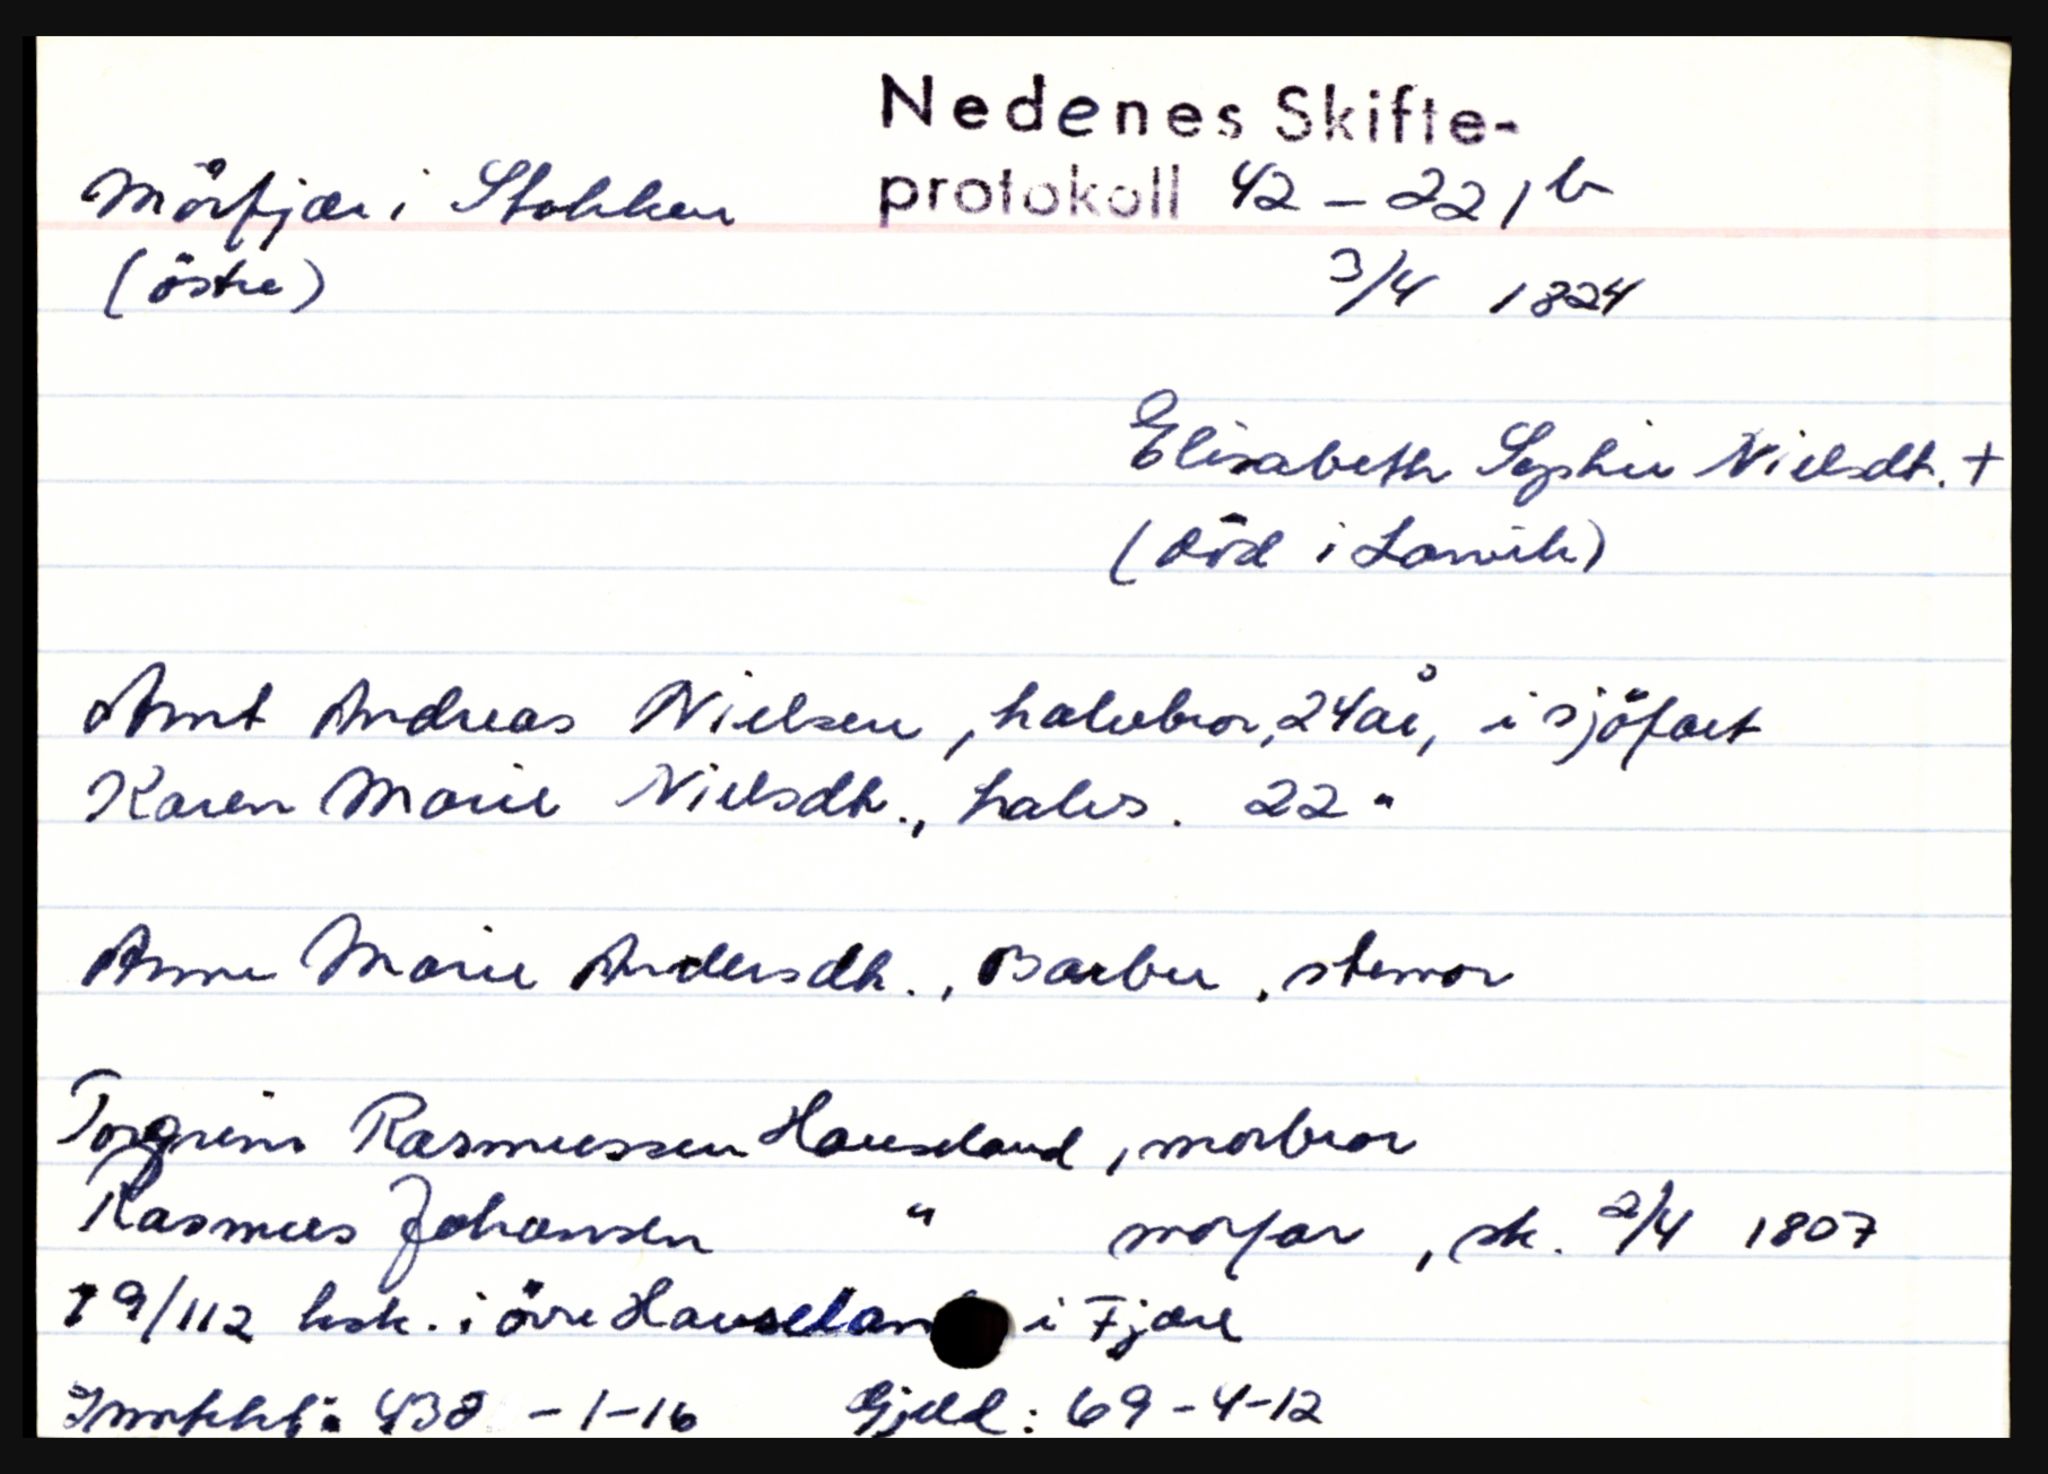 Nedenes Skifte-
Mörfjær i Stokken protokoll 42 - 221 b
(östre) 3/4 1824
Elisabeth Sophie Nielsdt. +
(död i Larvik)
Arnt Andreas Nielsen, halvbror, 24 år, i sjöfart
Karen Marie Nielsdt., halvs. 22 "
Anne Marie Andersdt., Barbu, stemor
Torgrim Rasmussen Hauseland, morbror
Rasmus Johansen " morfar, sk. 2/4 1807
19/112 hsk. i övre Hauseland i Fjære
Inntekt: 438 - 1-16 Gjeld: 69-4-12